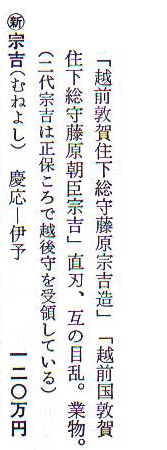 「越前敦賀住下総守藤原宗吉造」「越前国敦賀
住下総守藤原朝臣宗吉」直刃、互の目乱。業物。
(二代宗吉は正保ころで越後守を受領している)
㊟宗吉(むねよし) 慶応―伊予 一二〇万円